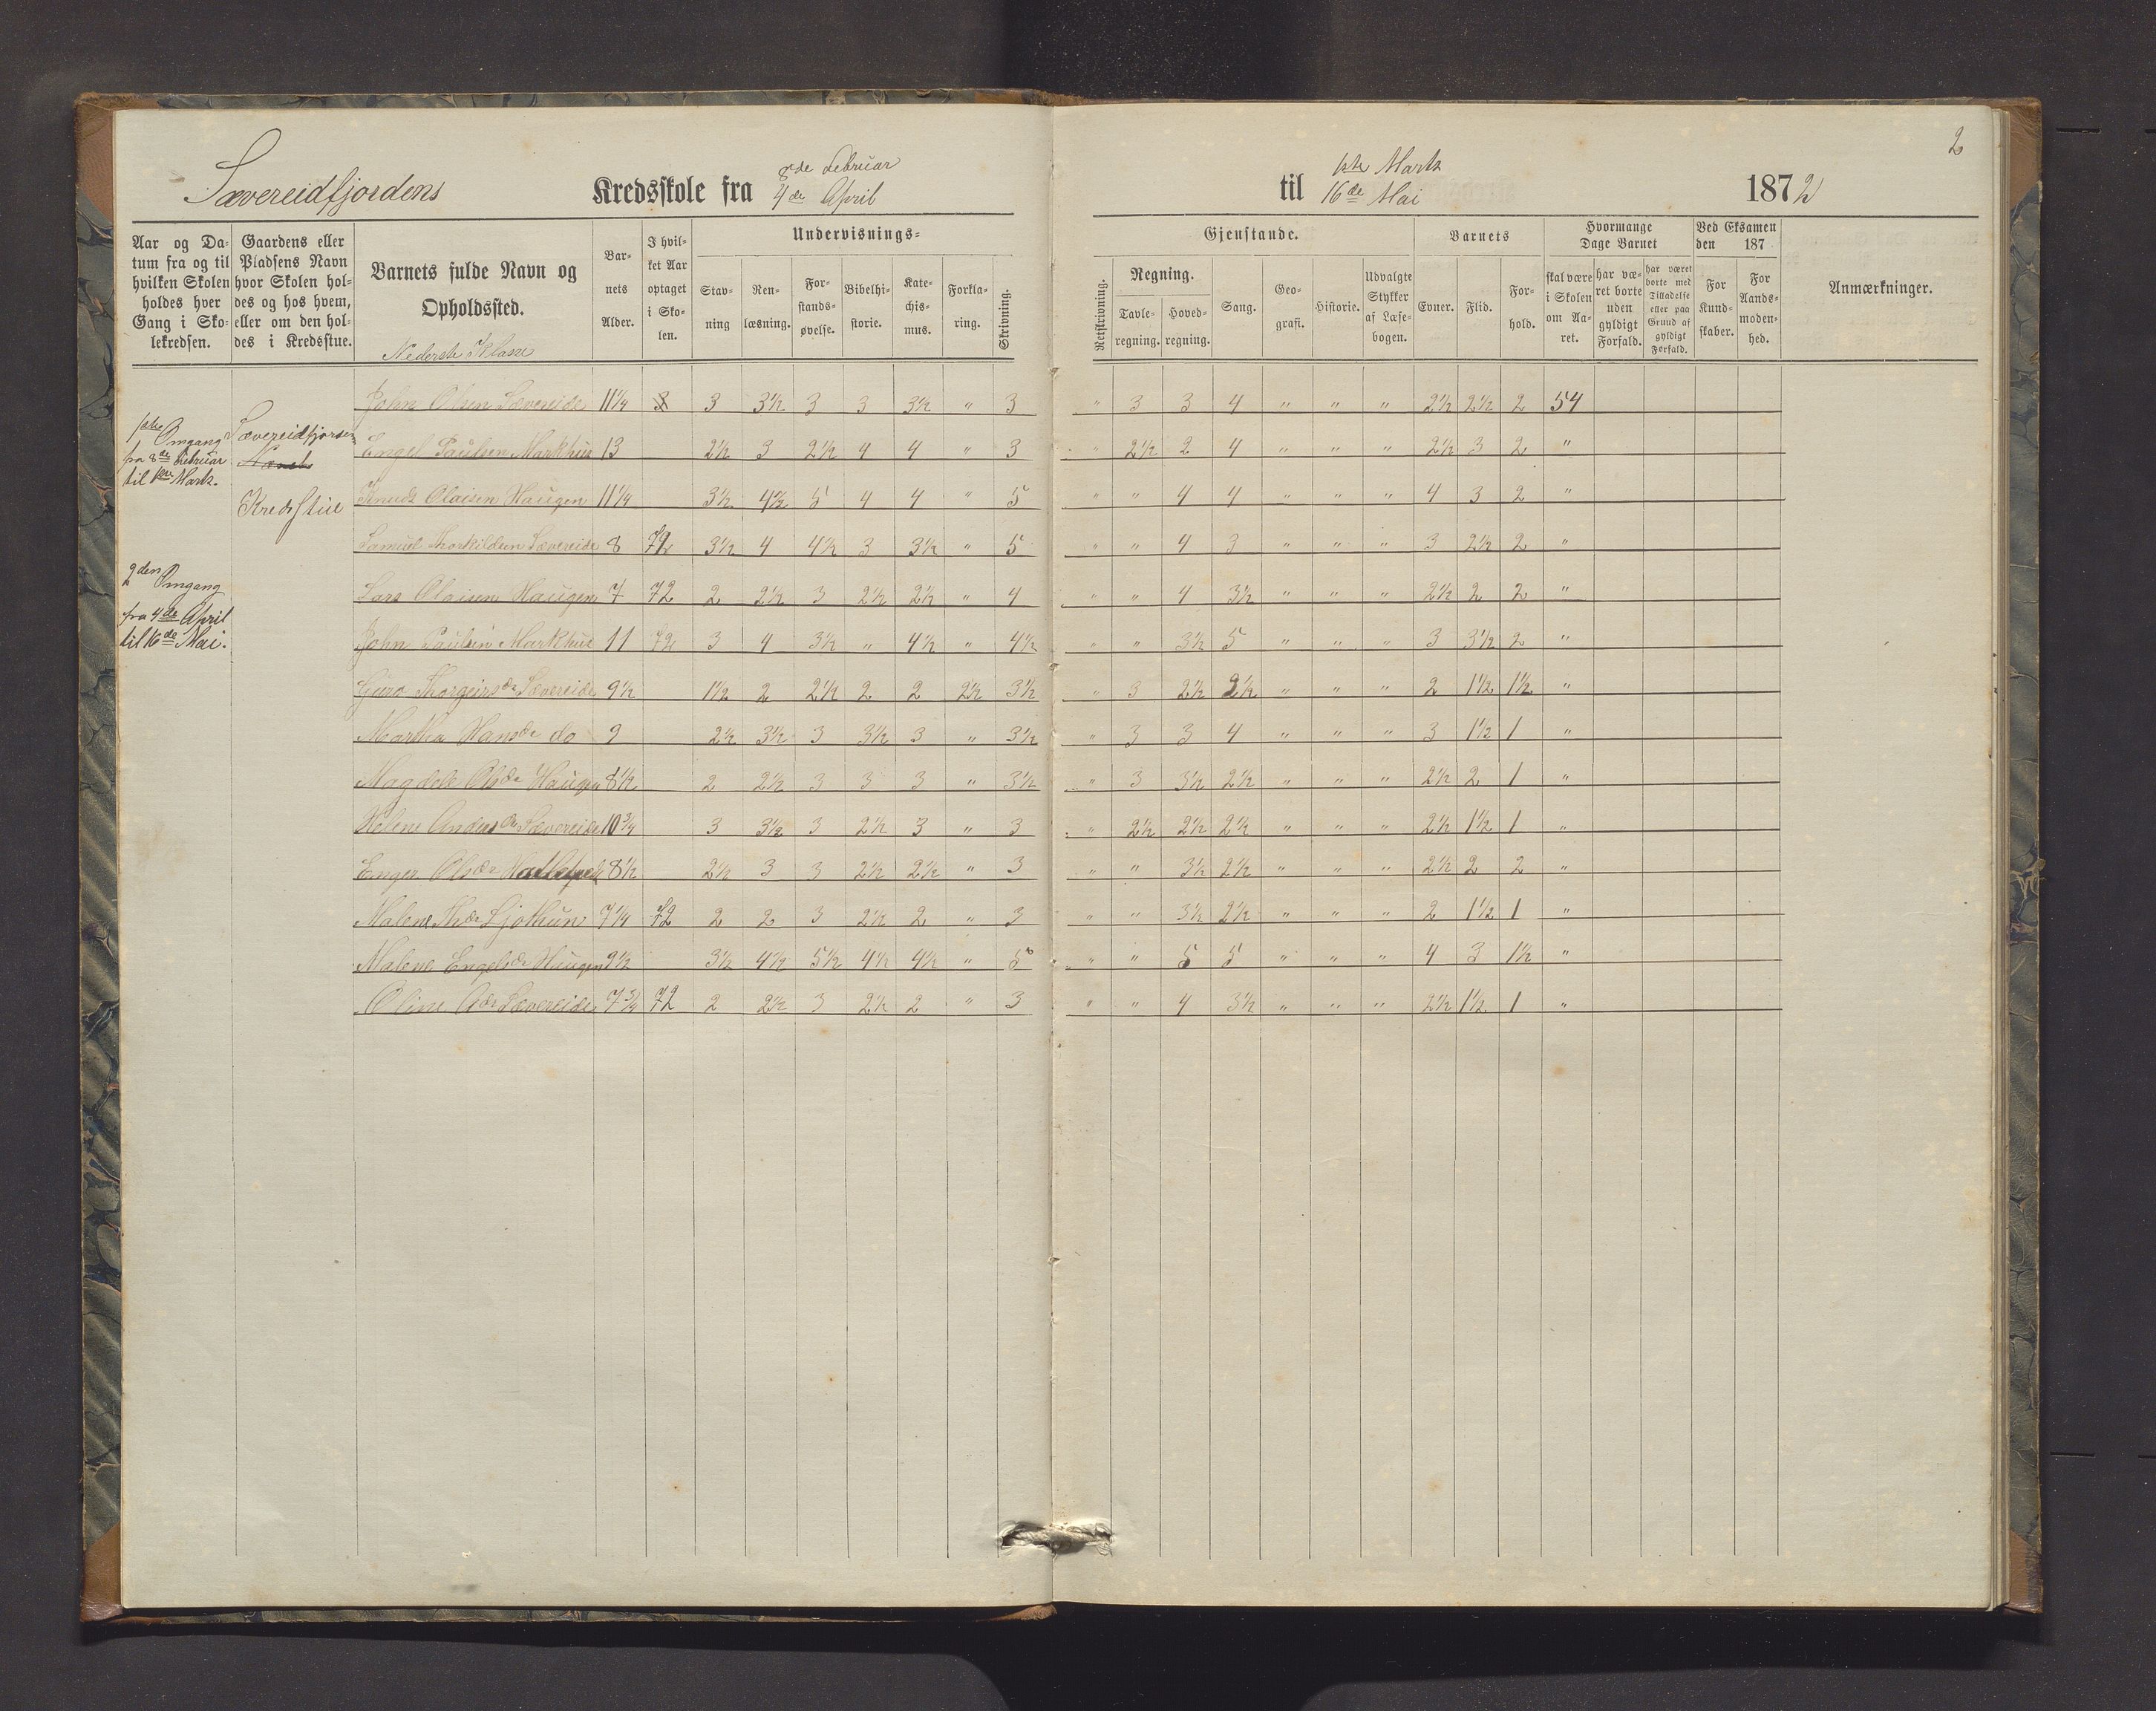 2
Sævereidfjordens Kredsskole fra 8de Februar 4de April til 1ste Marts 16de Mai 1872
Aar og Da-
tum fra og til
hvilken Skolen
holdes hver
Gang i Sko-
lekredsen.
Gaardens eller
Pladsens Navn
hvor Skolen hol-
des og hos hvem,
eller om den hol-
des i Kredsstue.
Barnets fulde Navn og
Opholdssted.
Nederste Klasse
Bar-
nets
Alder.
I hvil-
ket Aar
optaget
i Sko-
len.
Undervisnings-
Stav-
ning
Ren-
læsning.
For-
stands-
øvelse.
Bibelhi-
storie.
Kate-
chis-
mus.
Forkla-
ring.
Skrivning.
Gjenstande.
Retskrivning.
Regning.
Tavle-
regning.
Hoved-
regning.
Sang.
Geo-
grafi.
Historie.
Udvalgte
Stykker
af Læse-
bogen.
Barnets
Evner.
Flid.
For-
hold.
Hvormange
Dage Barnet
skal være
i Skolen
om Aa-
ret.
har væ-
ret borte
uden
gyldigt
Forfald.
har været
borte med
Tilladelse
eller paa
Grund af
gyldigt
Forfald.
Ved Eksamen
den 187
For
Kund-
skaber.
For
Aands-
moden-
hed.
Anmærkninger.
1ste Omgang
fra 8de Februar
til 1ste Marts.
2den Omgang
fra 4de April
til 16de Mai.
Sævereidfjorden
Kredsstue
John Olsen Sævereide 11¼ 3 3½ 3 3 3½ " 3 " 3 3 4 " " " 2½ 2½ 2 54
Engel Paulsen Markhus 13 2½ 3 2½ 4 4 " 3 " 2½ 2 4 " " " 2½ 3 2 "
Knudt Olaisen Haugen 11¼ 3½ 4½ 5 4 4 " 5 " " 4 4 " " " 4 3 2 "
Samuel Thorkildsen Sævereide 8 72 3½ 4 4½ 3 3½ " 5 " " 4 3 " " " 3 2½ 2 "
Lars Olaisen Haugen 7 72 2 2½ 3 2½ 2½ " 4 " " 4 3½ " " " 2½ 2 2 "
John Paulsen Markhus 11 72 3 4 3½ " 4½ " 4½ " " 3½ 5 " " " 3 3½ 2 "
Guro Thorgeirsdr Sævereide 9½ 1½ 2 2½ 2 2 2½ 3½ " 3 2½ 2½ " " " 2 1½ 1½ "
Martha Hansdr do 9 2½ 3½ 3 3½ 3 " 3½ " 3 3 4 " " " 3 1½ 1 "
Magdele Olsdr Haugen 8½ 2 2½ 3 3 3 " 3½ " 3 3½ 2½ " " " 2½ 2 1 "
Helene Andersdr Sævereide 10¾ 3 3½ 3 2½ 3 " 3 " 2½ 2½ 2½ " " " 2½ 1½ 1 "
Enger Olsdr 8½ 2½ 3 3 2½ 2½ " 3 " " 3½ 2½ " " " 2½ 2 2 "
Malene Thdr Sjothun 7¼ 72 2 2 3 2½ 2 " 3 " " 3½ 2½ " " " 2 1½ 1 "
Malene Engelsdr Haugen 9½ 3½ 4½ 5½ 4½ 4½ " 5 " " 5 5 " " " 4 3 1½ "
Oline Adr Sævereide 7¾ 72 2 2½ 3 2½ 2 " 3 " " 4 3½ " " " 2½ 1½ 1 "